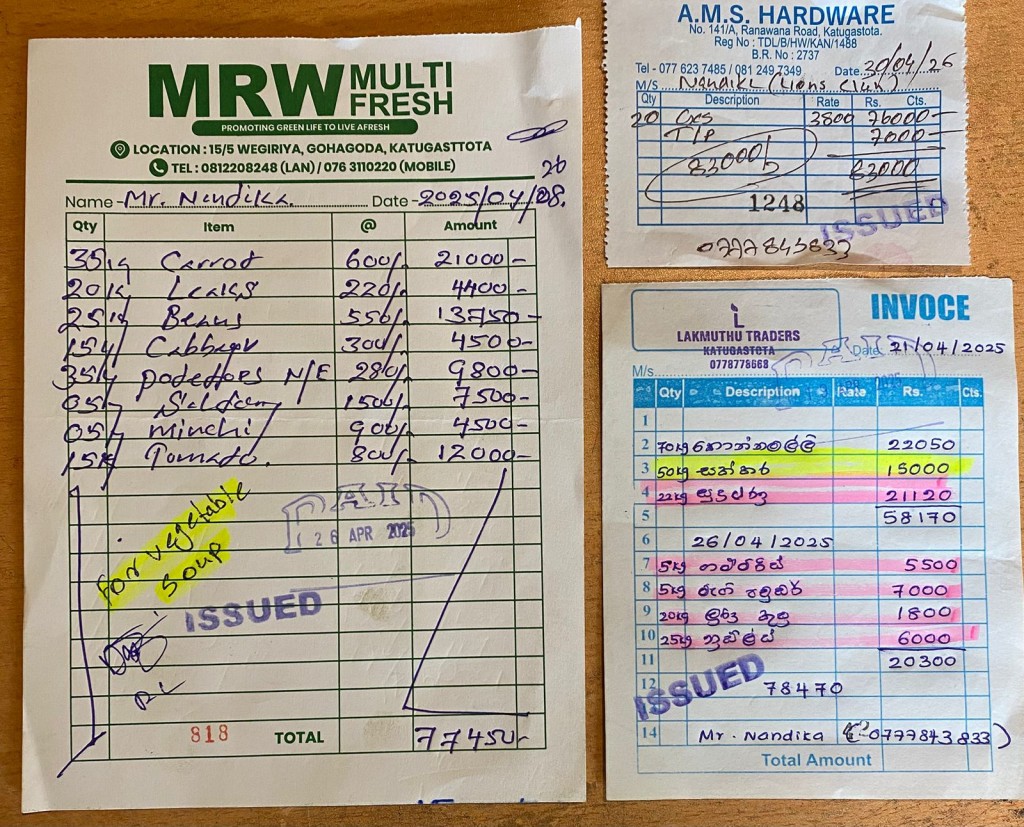 MRW MULTI FRESH
PROMOTING GREEN LIFE TO LIVE AFRESH
LOCATION : 15/5 WEGIRIYA, GOHAGODA, KATUGASTTOTA
TEL : 0812208248 (LAN) / 076 3110220 (MOBILE)
26
Name - Mr. Nandika. Date - 2025/04/28.
Qty Item @ Amount
35kg Carrot 600/- 21000-
20kg Leaks 220/- 4400-
25kg Beans 550/- 13750-
15kg Cabbage 300/- 4500-
35kg N/E 280/- 9800-
05kg 1500/- 7500-
05kg Minchi 900/- 4500-
15kg Tomado. 800/- 12000-
For vegetable
soup
PAID
26 APR 2025
ISSUED
818 TOTAL 77450-
A.M.S. HARDWARE
No. 141/A, Ranawana Road, Katugastota.
Reg No : TDL/B/HW/KAN/1488
B.R. No : 2737
Tel - 077 623 7485 / 081 249 7349 Date 20/04/26
M/s Nandika (Lions Club)
Qty Description Rate Rs. Cts.
20 3800 76000-
T/P 7000-
83000/- 83000
1248
ISSUED
0777843833
LAKMUTHU TRADERS
KATUGASTOTA
0778778668
INVOCE
PAID
Date 21/04/2025
M/s
Qty Description Rate Rs. Cts.
1
2 70kg කොත්තමල්ලි 22050
3 50kg සක්කර 15000
4 22kg සුදුළූණු 21120
5 58170
6 26/04/2025
7 5kg ගම්මිරිස් 5500
8 5kg 7000
9 20kg ලුණු කුඩු 1800
10 25kg නූඩ්ල්ස් 6000
11 20300
12 78470
ISSUED
14 Mr. Nandika (0777843833)
Total Amount